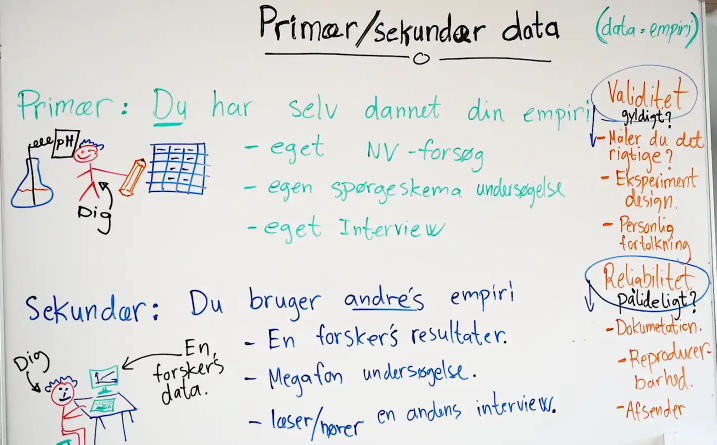 Primær/sekundær data
(data = empiri)
Primær: Du har selv dannet din empiri
pH
Dig
- eget NV-forsøg
- egen spørgeskema undersøgelse
- eget Interview
Validitet
gyldigt?
- Måler du det
rigtige?
- Eksperiment
design.
- Personlig
fortolkning
Sekundær: Du bruger andre's empiri
Dig
En
forsker's
data.
- En forsker's resultater.
- Megafon undersøgelse.
- læser/hører en andens interview.
Reliabilitet
pålideligt?
- Dokumetation.
- Reproducer-
barhed.
- Afsender